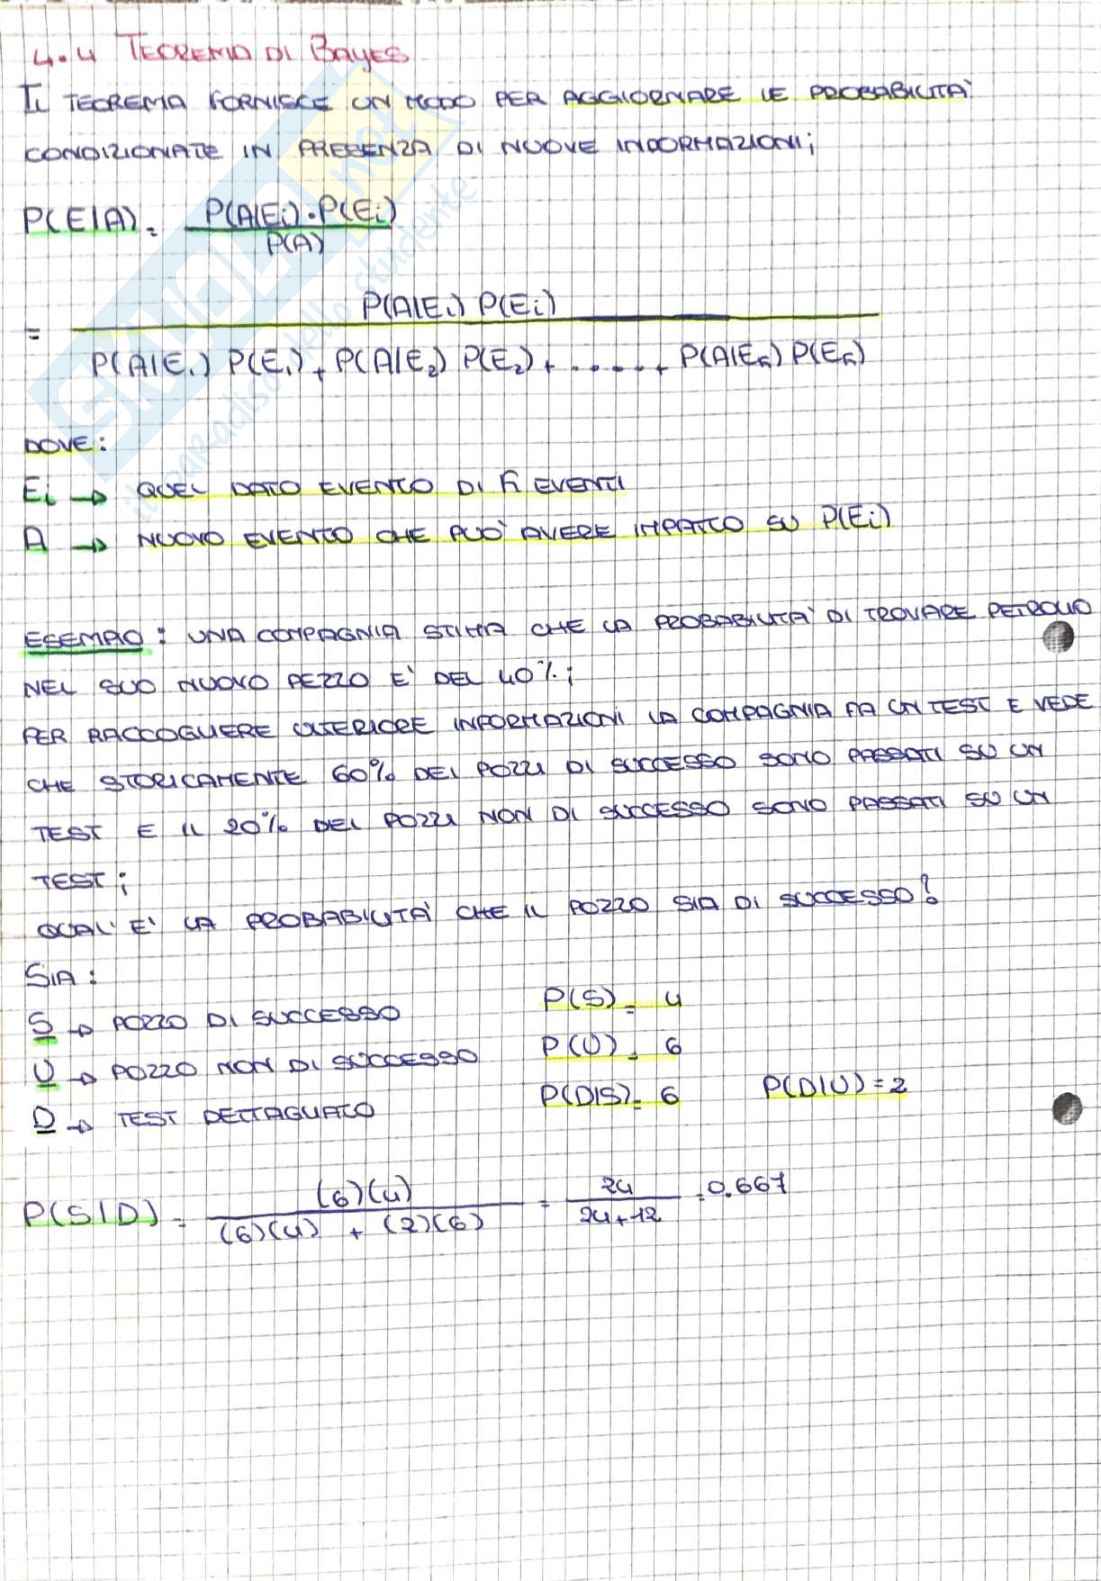 4.4 TEOREMA DI BAYES
IL TEOREMA FORNISCE UN MODO PER AGGIORNARE LE PROBABILITA'
CONDIZIONATE IN PRESENZA DI NUOVE INFORMAZIONI;
P(E|A) = P(A|Ei)·P(Ei)
P(A)
= P(A|Ei) P(Ei)
P(A|E1) P(E1) + P(A|E2) P(E2) + ..... + P(A|En) P(En)
DOVE:
Ei → QUEL DATO EVENTO DI n EVENTI
A → NUOVO EVENTO CHE PUO' AVERE IMPATTO SU P(Ei)
ESEMPIO: UNA COMPAGNIA STIMA CHE LA PROBABILITA' DI TROVARE PETROLIO
NEL SUO NUOVO PEZZO E' DEL 40%;
PER RACCOGLIERE ULTERIORE INFORMAZIONI LA COMPAGNIA FA UN TEST E VEDE
CHE STORICAMENTE 60% DEI POZZI DI SUCCESSO SONO PASSATI SU UN
TEST E IL 20% DEI POZZI NON DI SUCCESSO SONO PASSATI SU UN
TEST;
QUAL' E' LA PROBABILITA' CHE IL POZZO SIA DI SUCCESSO?
SIA:
S → POZZO DI SUCCESSO P(S) = 4
U → POZZO NON DI SUCCESSO P(U) = 6
D → TEST DETTAGLIATO P(D|S) = 6 P(D|U) = 2
P(S|D) = (6)(4) = 24 = 0.667
(6)(4) + (2)(6) 24+12
SKUOLA.net
il paradiso dello studente